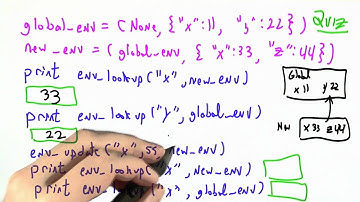 global_env = (None, {"x":11, "y":22}) Quiz
new_env = (global_env, {"x":33, "z":44})
print env_lookup("x", new_env)
33
print env_lookup("y", global_env)
22
env_update("x", 55, new_env)
print env_lookup("x", new_env)
print env_lookup("x", global_env)
Global
x 11 y 22
New
x 33 z 44